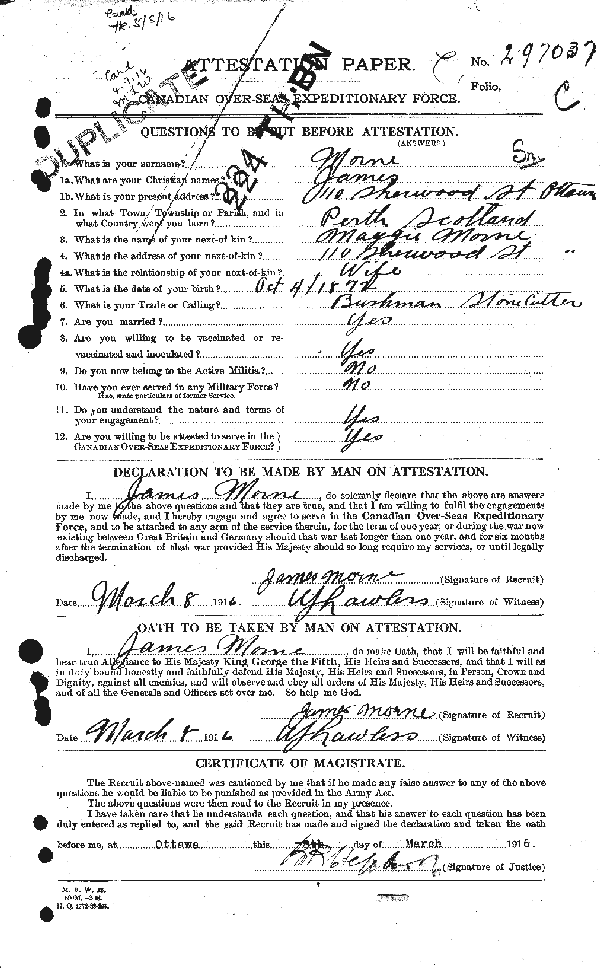 Card
ATTESTATION PAPER.
No. 297037
Folio.
C
DUPLICATE
224TH. BN
CANADIAN OVER-SEAS EXPEDITIONARY FORCE.
QUESTIONS TO BE PUT BEFORE ATTESTATION.
(ANSWERS)
1. What is your surname? Morne Sr
1a. What are your Christian names? James
1b. What is your present address? 110 Sherwood St Ottawa
2. In what Town, Township or Parish, and in
what Country were you born? Perth Scotland
3. What is the name of your next-of kin? Maggie Morne
4. What is the address of your next-of-kin? 110 Sherwood St "
4a. What is the relationship of your next-of-kin? Wife
5. What is the date of your birth? Oct 4/1872
6. What is your Trade or Calling? Bushman Stone Cutter
7. Are you married? Yes
8. Are you willing to be vaccinated or re-
vaccinated and inoculated? Yes
9. Do you now belong to the Active Militia? No
10. Have you ever served in any Military Force? No
If so, state particulars of former Service.
11. Do you understand the nature and terms of
your engagement? Yes
12. Are you willing to be attested to serve in the
CANADIAN OVER-SEAS EXPEDITIONARY FORCE? Yes
DECLARATION TO BE MADE BY MAN ON ATTESTATION.
I, James Morne, do solemnly declare that the above are answers
made by me to the above questions and that they are true, and that I am willing to fulfil the engagements
by me now made, and I hereby engage and agree to serve in the Canadian Over-Seas Expeditionary
Force, and to be attached to any arm of the service therein, for the term of one year, or during the war now
existing between Great Britain and Germany should that war last longer than one year, and for six months
after the termination of that war provided His Majesty should so long require my services, or until legally
discharged.
James Morne (Signature of Recruit)
Date March 8 1916 (Signature of Witness)
OATH TO BE TAKEN BY MAN ON ATTESTATION.
I, James Morne, do make Oath, that I will be faithful and
bear true Allegiance to His Majesty King George the Fifth, His Heirs and Successors, and that I will as
in duty bound honestly and faithfully defend His Majesty, His Heirs and Successors, in Person, Crown and
Dignity, against all enemies, and will observe and obey all orders of His Majesty, His Heirs and Successors,
and of all the Generals and Officers set over me. So help me God.
James Morne (Signature of Recruit)
Date March 8 1916 (Signature of Witness)
CERTIFICATE OF MAGISTRATE.
The Recruit above-named was cautioned by me that if he made any false answer to any of the above
questions he would be liable to be punished as provided in the Army Act.
The above questions were then read to the Recruit in my presence.
I have taken care that he understands each question, and that his answer to each question has been
duly entered as replied to, and the said Recruit has made and signed the declaration and taken the oath
before me, at Ottawa this day of March 1916.
(Signature of Justice)